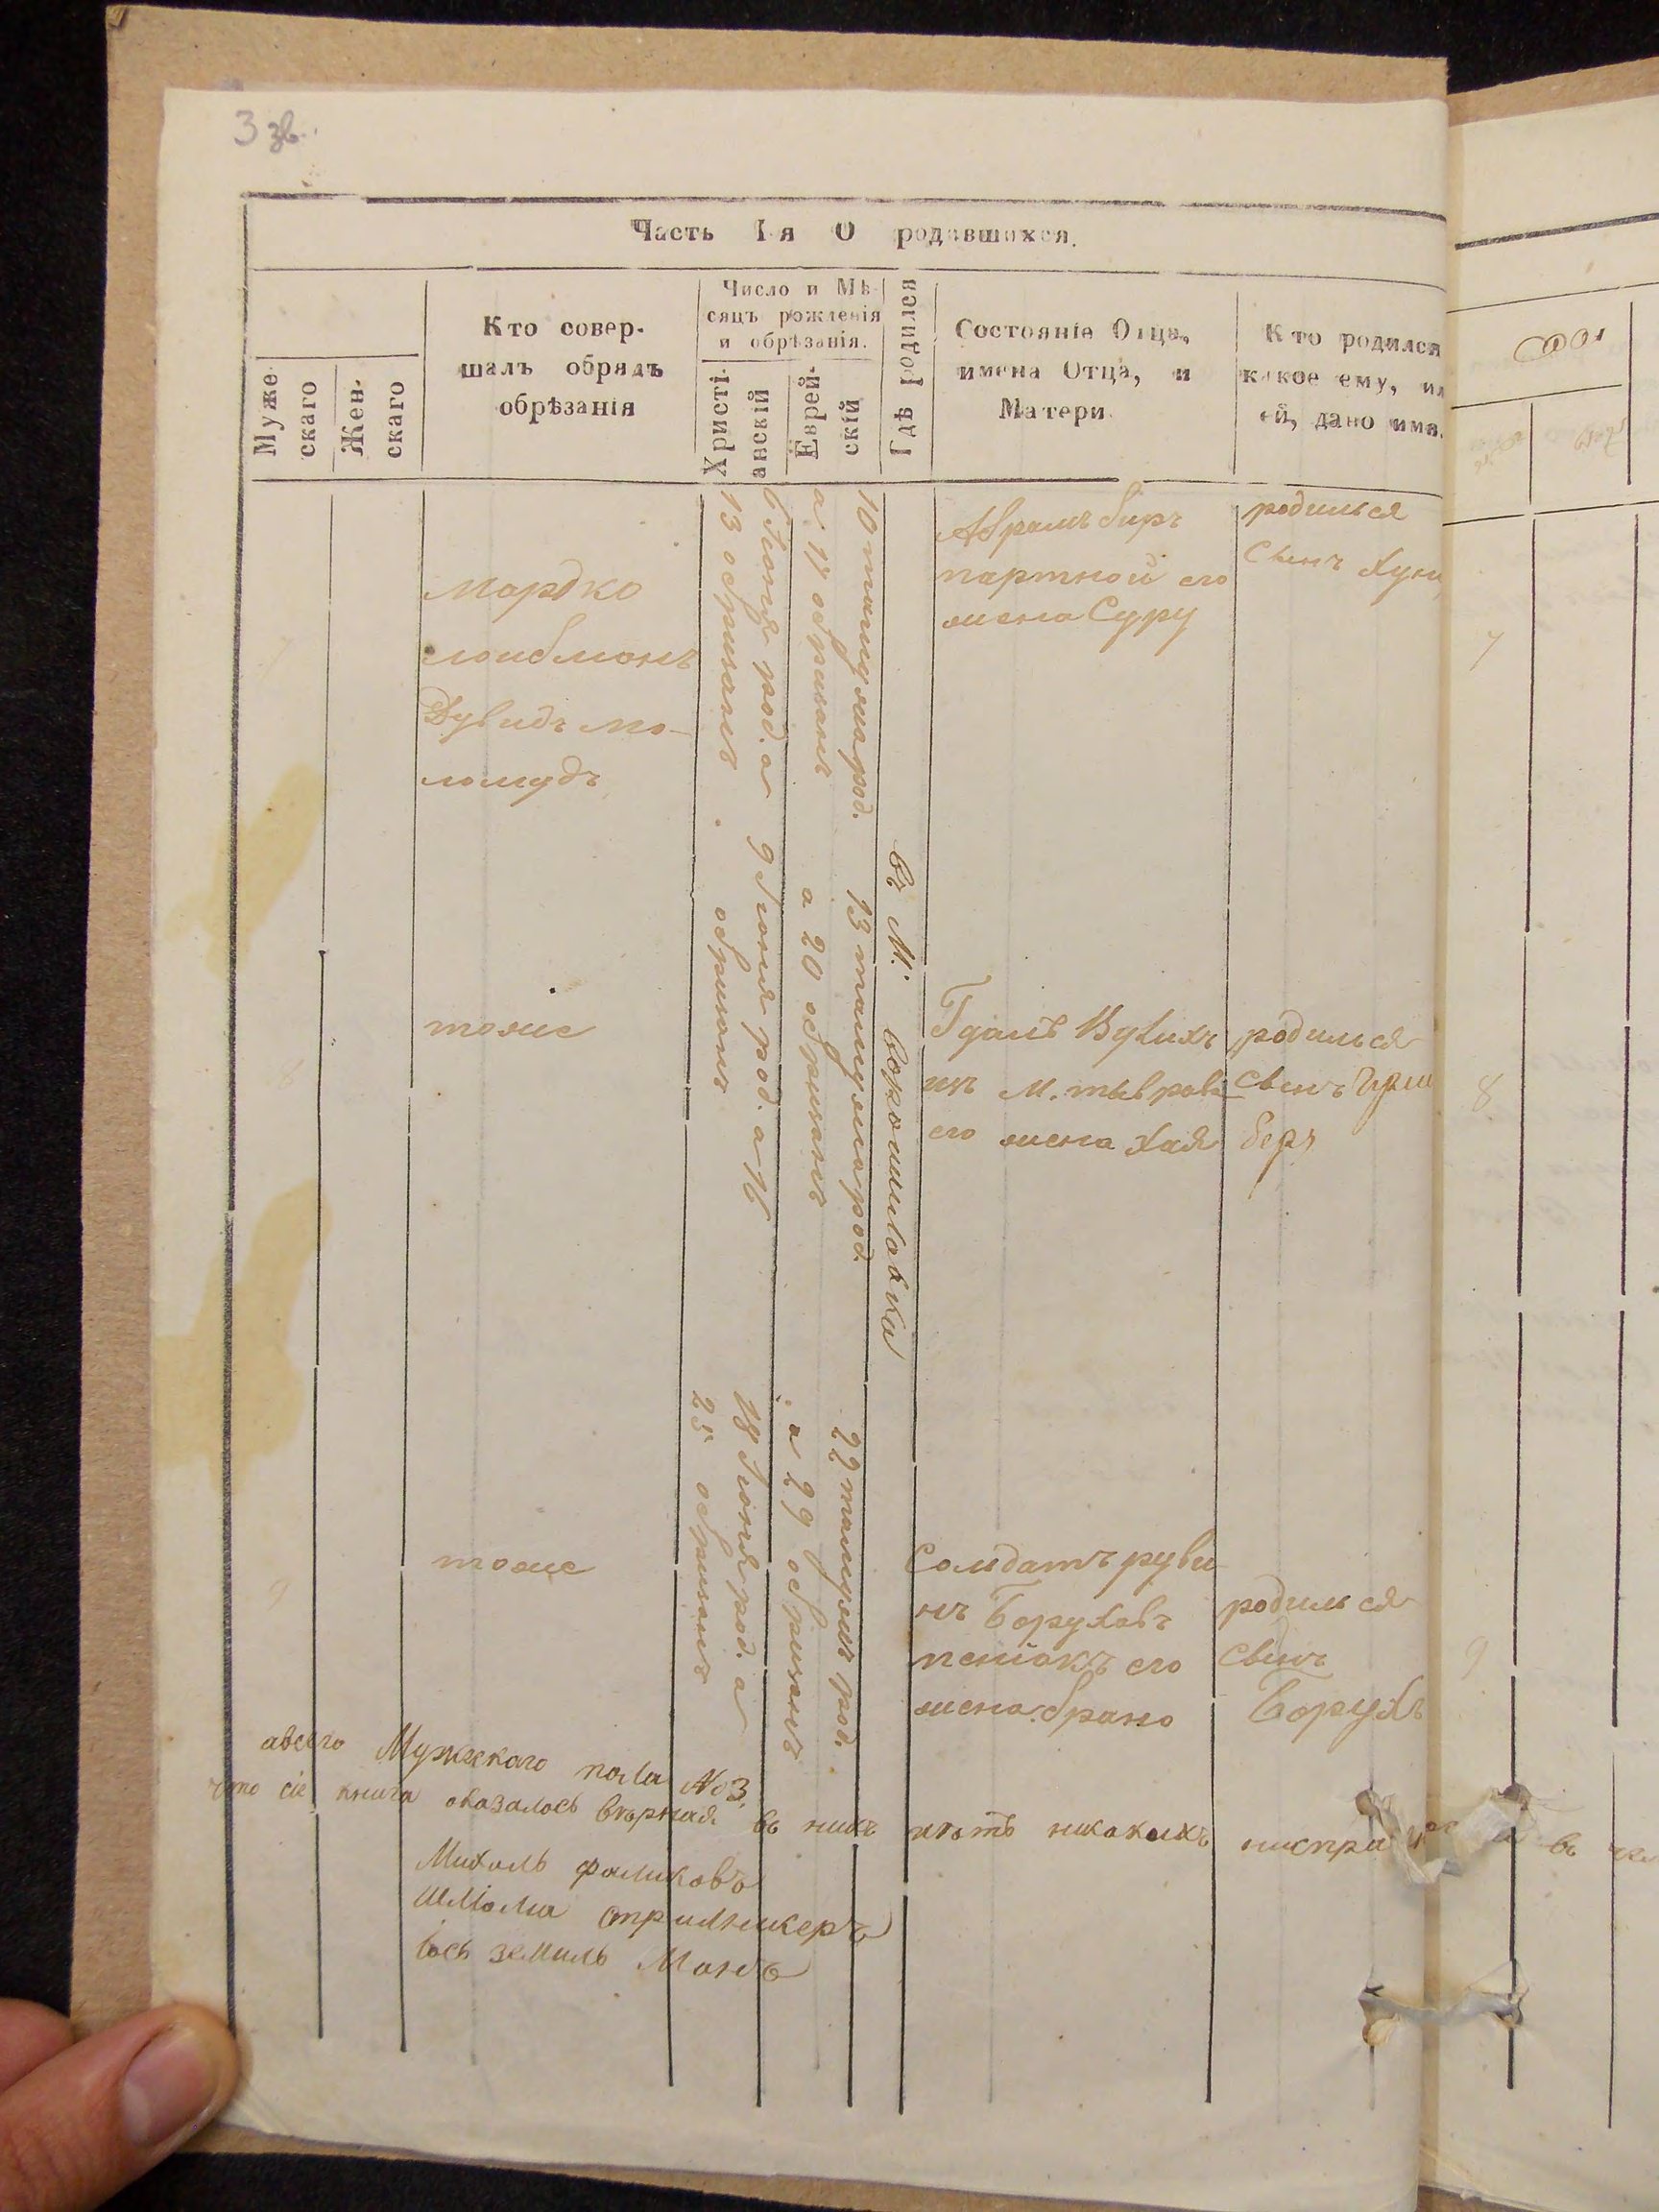 3 зв.
Часть I-я О родившихся.
Мужескаго
Женскаго
Кто совер-
шалъ обрядъ
обрѣзанія
Число и Мѣ-
сяцъ рожденія
и обрѣзанія.
Христі-
анскій
Еврей-
скій
Гдѣ родился
Состояніе Отца,
имена Отца, и
Матери.
Кто родился
какое ему, ил
ей, дано имя.
7
мордко
лоибмонъ
Дувидъ мо-
ломудъ
6 Іюня род. а
13 обризанъ
10 тамуза род.
а 17 обризанъ
въ М. ворошиловка
Абрамъ биръ
партной его
жена Суру
родилься
сынъ Хуни
7
8
тоже
9 Іюня род. а 16
обризанъ
13 тамуза род.
а 20 обризанъ
Гдаль
изъ М. тывров
его жена Хая
родилься
сынъ Герш
беръ
8
9
тоже
18 Іюня род. а
25 обризанъ
22 тамуза род.
а 29 обризанъ
Солдатъ руви
нъ Боруховъ
его
жена брано
родилься
сынъ
Борухъ
9
авсего Мужскаго пола № 3,
что сіе книга оказалось вѣрная въ нихъ нѣтъ никакихъ
Михаль фаликовъ
Шлiома
Іось земиль Манъ